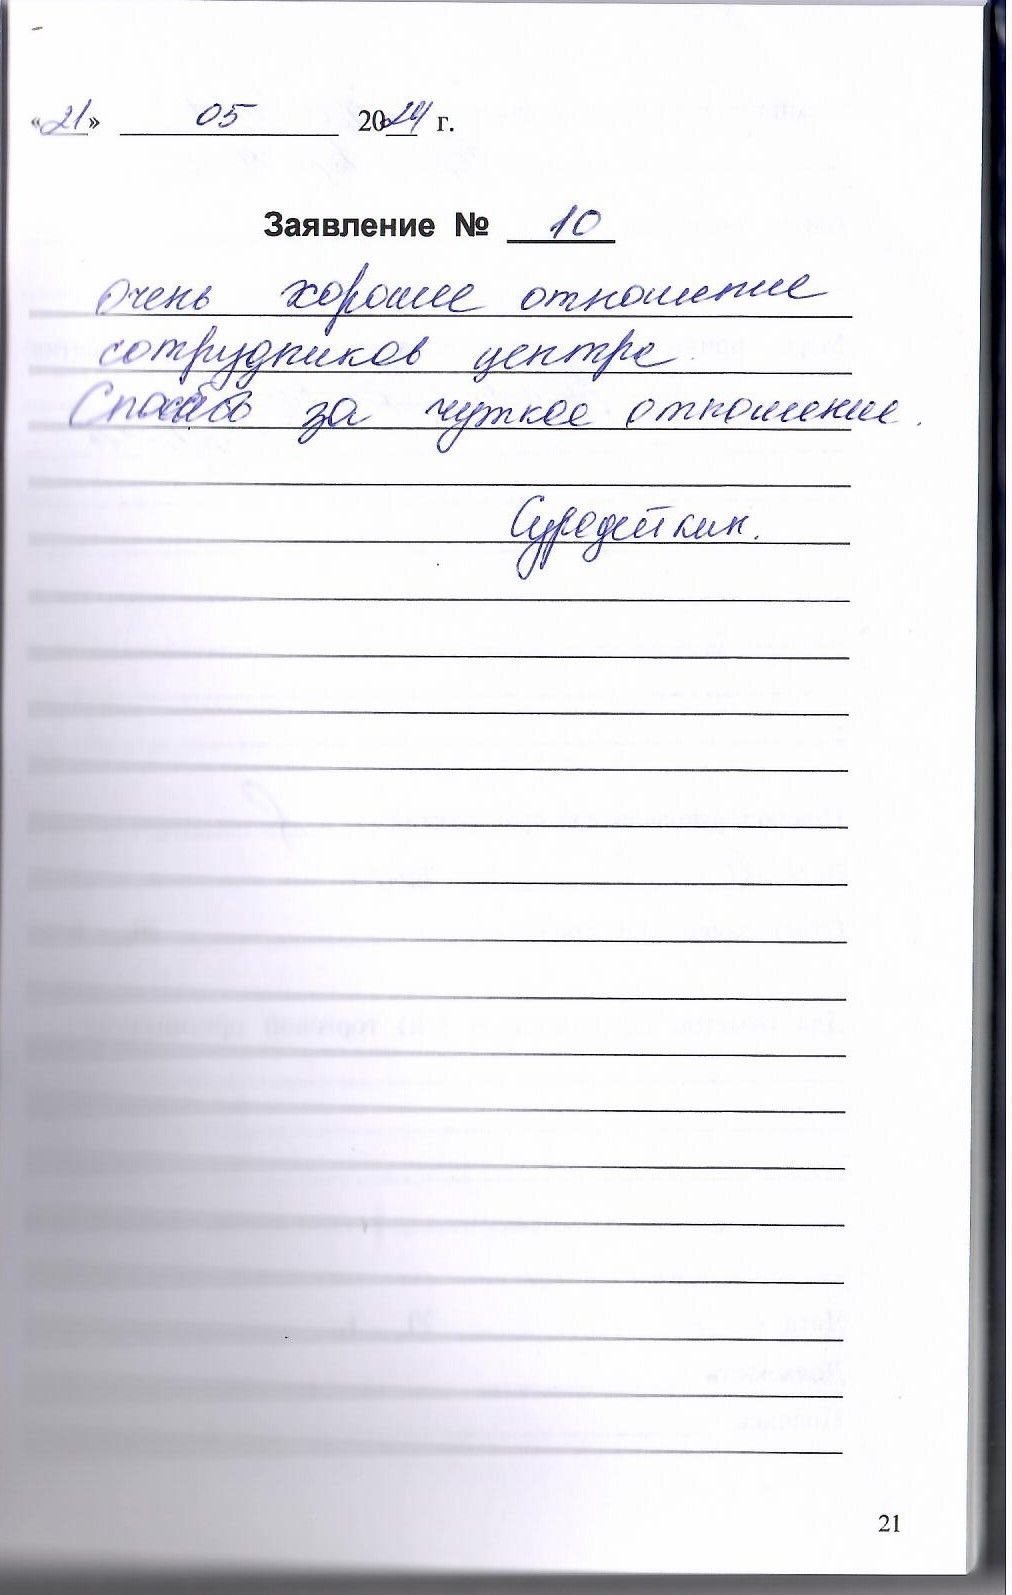 «21» 05 2024 г.
Заявление № 10
Очень хорошее отношение
сотрудников центра.
Спасибо за чуткое отношение.
Суродейкин.
21